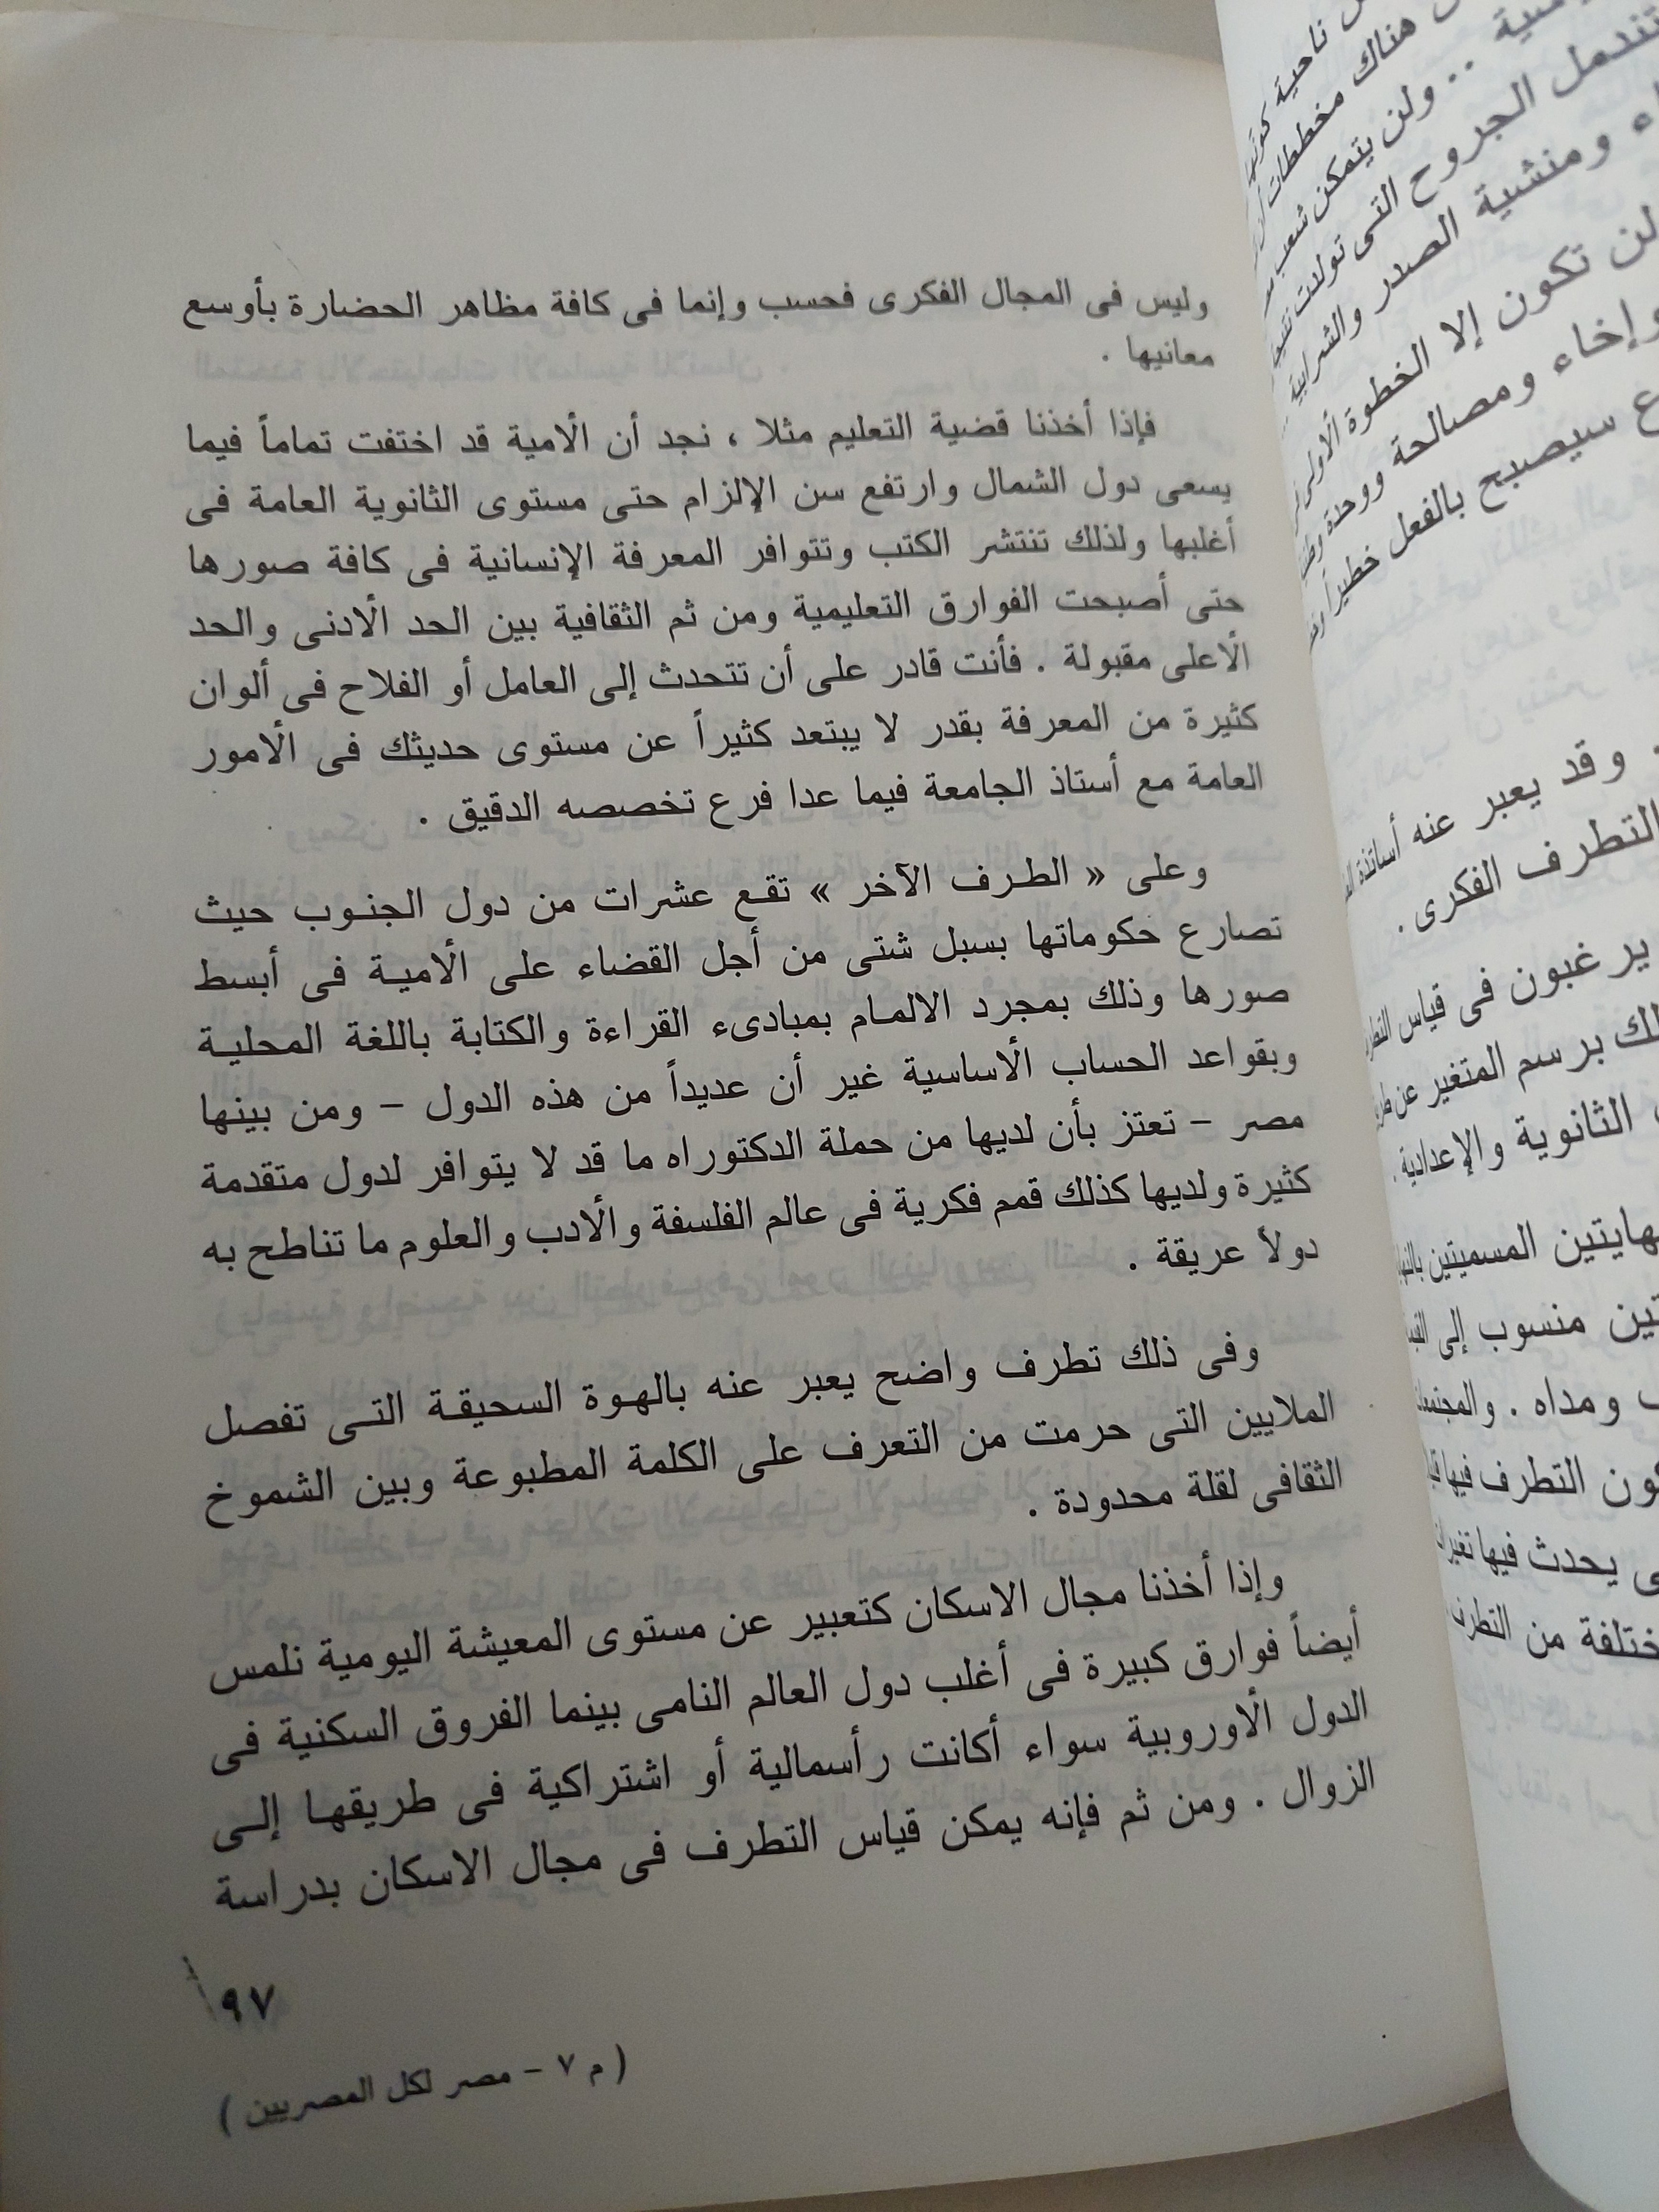 وليس فى المجال الفكرى فحسب وإنما فى كافة مظاهر الحضارة بأوسع
معانيها .
فإذا أخذنا قضية التعليم مثلا ، نجد أن الأمية قد اختفت تماماً فيما
يسعى دول الشمال وارتفع سن الإلزام حتى مستوى الثانوية العامة فى
أغلبها ولذلك تنتشر الكتب وتتوافر المعرفة الإنسانية فى كافة صورها
حتى أصبحت الفوارق التعليمية ومن ثم الثقافية بين الحد الأدنى والحد
الأعلى مقبولة . فأنت قادر على أن تتحدث إلى العامل أو الفلاح فى ألوان
كثيرة من المعرفة بقدر لا يبتعد كثيراً عن مستوى حديثك فى الأمور
العامة مع أستاذ الجامعة فيما عدا فرع تخصصه الدقيق .
وعلى « الطرف الآخر » تقع عشرات من دول الجنوب حيث
تصارع حكوماتها بسبل شتى من أجل القضاء على الأمية فى أبسط
صورها وذلك بمجرد الالمام بمبادىء القراءة والكتابة باللغة المحلية
وبقواعد الحساب الأساسية غير أن عديداً من هذه الدول – ومن بينها
مصر – تعتز بأن لديها من حملة الدكتوراه ما قد لا يتوافر لدول متقدمة
كثيرة ولديها كذلك قمم فكرية فى عالم الفلسفة والأدب والعلوم ما تناطح به
دولاً عريقة .
وفى ذلك تطرف واضح يعبر عنه بالهوة السحيقة التى تفصل
الملايين التى حرمت من التعرف على الكلمة المطبوعة وبين الشموخ
الثقافى لقلة محدودة .
وإذا أخذنا مجال الاسكان كتعبير عن مستوى المعيشة اليومية نلمس
أيضاً فوارق كبيرة فى أغلب دول العالم النامى بينما الفروق السكنية فى
الدول الأوروبية سواء أكانت رأسمالية أو اشتراكية فى طريقها إلى
الزوال . ومن ثم فإنه يمكن قياس التطرف فى مجال الاسكان بدراسة
٩٧
( م ٧ – مصر لكل المصريين )
ناحية
هناك مخططات
.. ولن يتمكن شعب
تندمل الجروح التى تولدت
ومنشية الصدر والشرابية
لن تكون إلا الخطوة الأولى
وإخاء ومصالحة ووحدة
سيصبح بالفعل خطيراً
وقد يعبر عنه أساتذة
التطرف الفكرى .
يرغبون فى قياس
برسم المتغير عن
الثانوية والإعدادية .
المسميتين
منسوب إلى
ومداه . والمجتمعات
التطرف فيها
يحدث فيها تغيرات
من التطرف